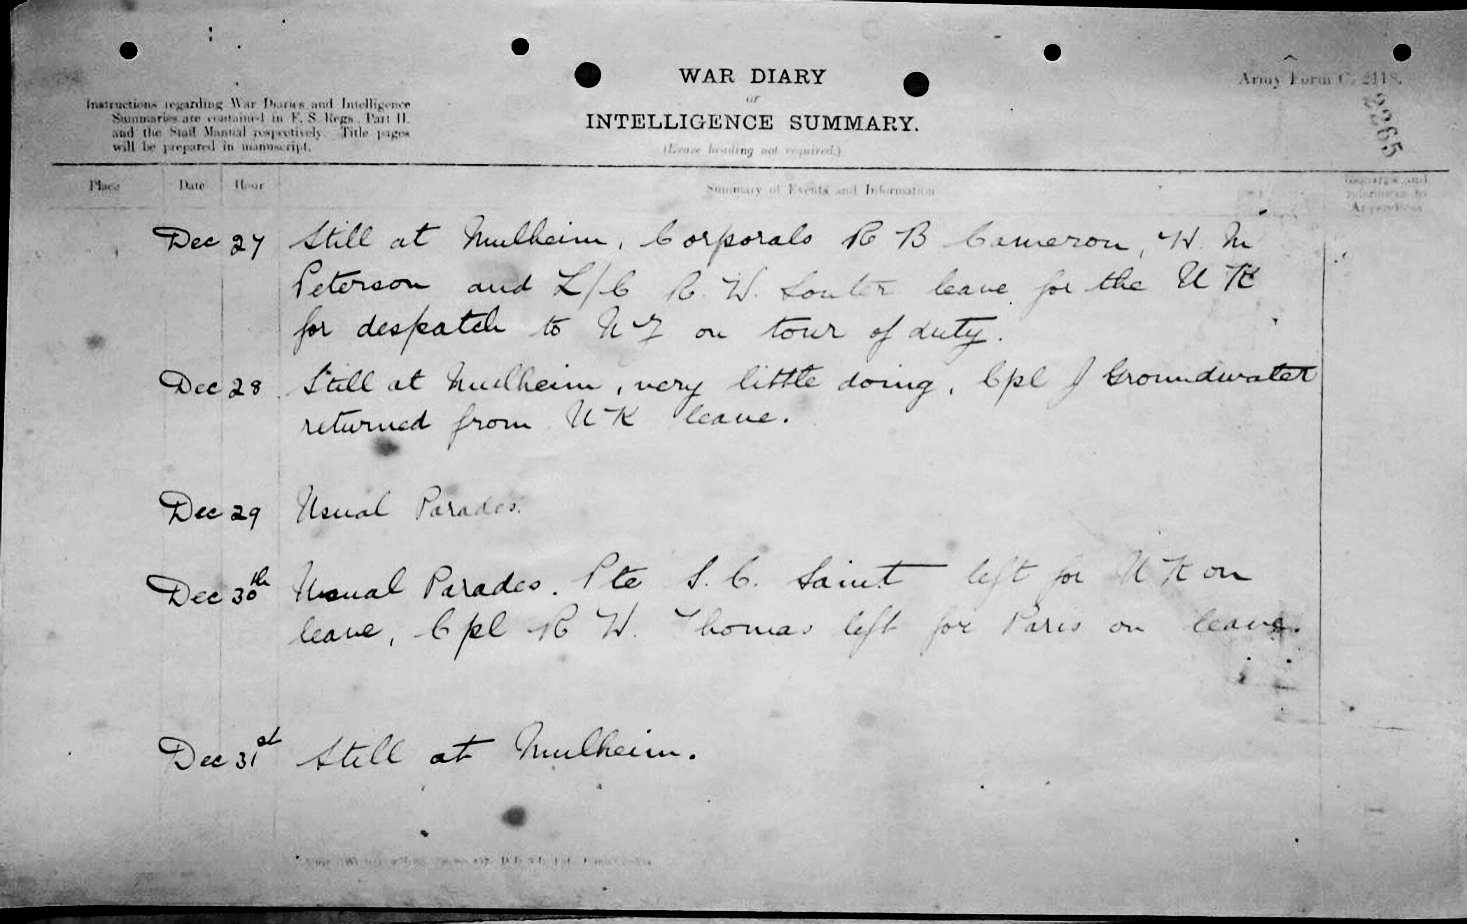 WAR DIARY
or
INTELLIGENCE SUMMARY.
(Erase heading not required.)
Army Form C. 2118.
2265
Instructions regarding War Diaries and Intelligence
Summaries are contained in F. S. Regs., Part II.
and the Staff Manual respectively. Title pages
will be prepared in manuscript.
Place Date Hour Summary of Events and Information
Remarks and
references to
Appendices
Dec 27 Still at Mulheim, Corporals R B Cameron, W. M
Peterson and L/C R. W. Souter leave for the U K
for despatch to N Z on tour of duty.
Dec 28 Still at Mulheim, very little doing, Cpl J Groundwater
returned from U K leave.
Dec 29 Usual Parades.
Dec 30th Usual Parades. Pte S. C. Saint left for U K on
leave, Cpl R W. Thomas left for Paris on leave.
Dec 31st Still at Mulheim.